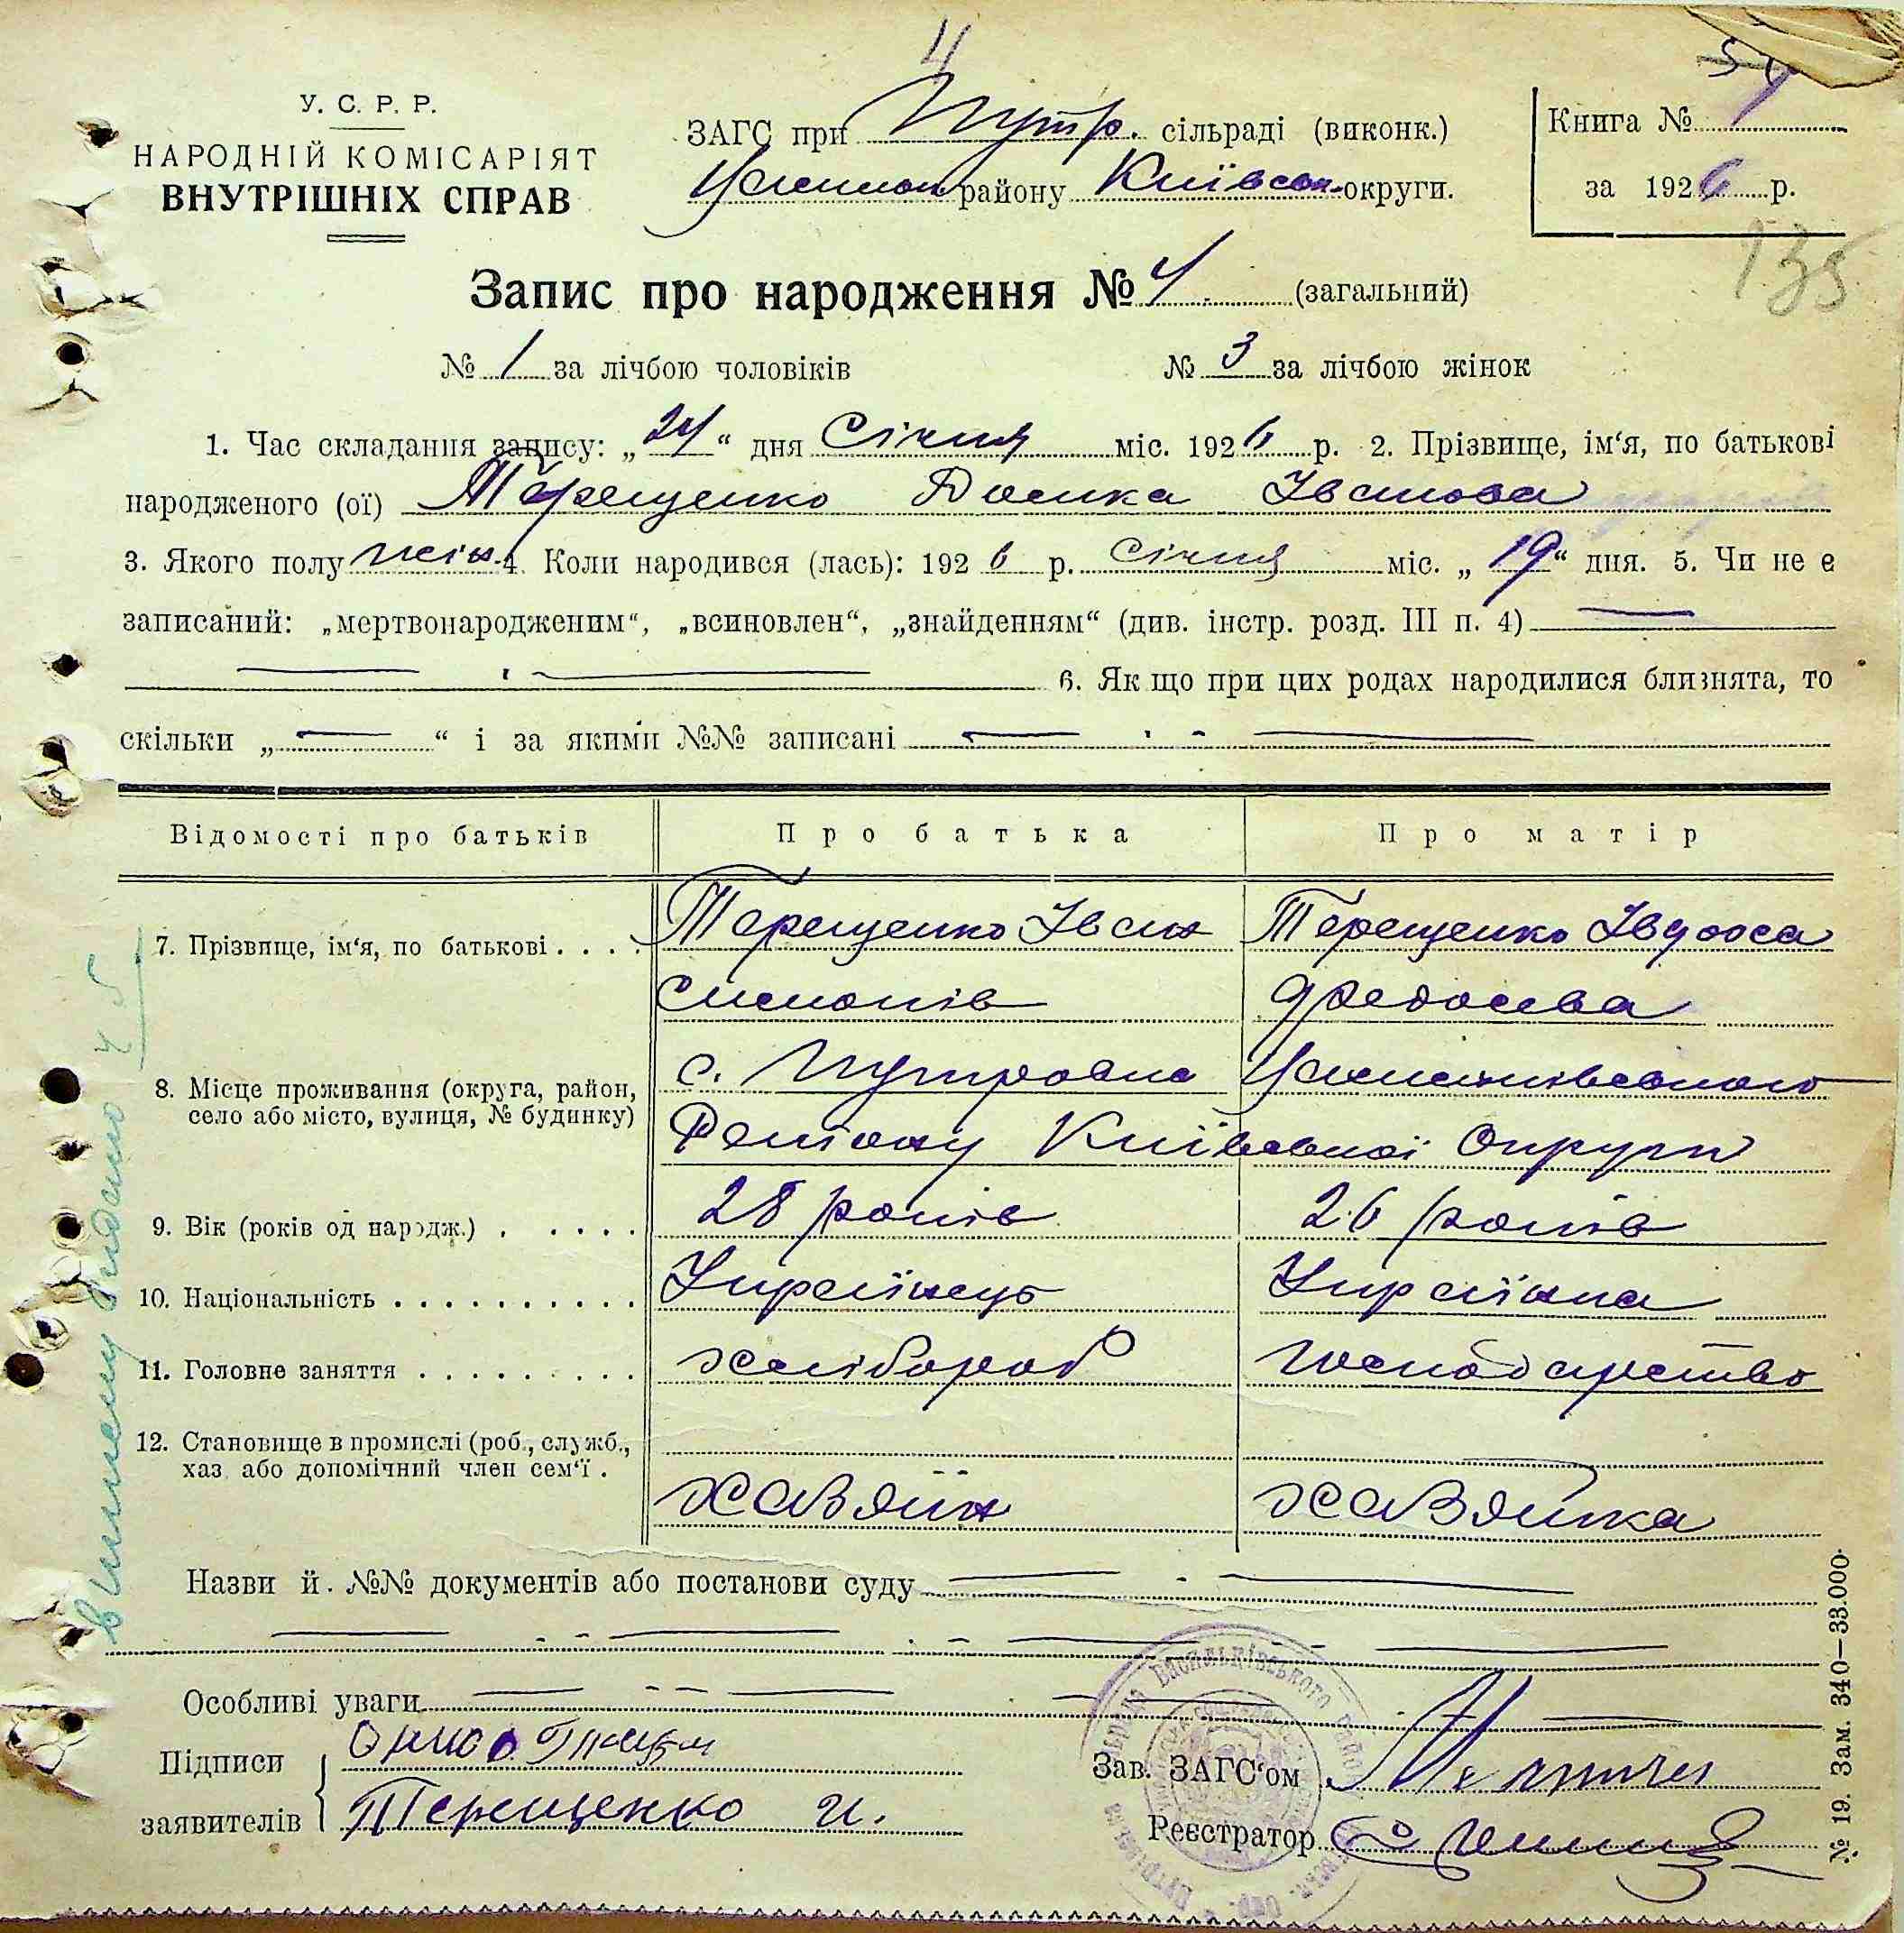 4
У. С. Р. Р.
НАРОДНІЙ КОМІСАРІЯТ
ВНУТРІШНІХ СПРАВ
ЗАГС при Путр. сільраді (виконк.)
району Київськ. округи.
Книга №
за 1926 р.
135
Запис про народження № 4 (загальний)
№ 1 за лічбою чоловіків № 3 за лічбою жінок
1. Час складання запису: „24“ дня Січня міс. 1926 р. 2. Прізвище, ім‘я, по батькові
народженого (ої) Терещенко Домка Іванова
3. Якого полу жін. 4. Коли народився (лась): 1926 р. Січня міс. „19“ дня. 5. Чи не є
записаний: „мертвонародженим“, „всиновлен“, „знайденням“ (див. інстр. розд. III п. 4) —
6. Як що при цих родах народилися близнята, то
скільки „—“ і за якими №№ записані —
Відомості про батьків Про батька Про матір
7. Прізвище, ім‘я, по батькові . . . . Терещенко Іван Терещенко Івдоха
Федосієва
8. Місце проживання (округа, район, село або місто, вулиця, № будинку) с. Путровка
Району Київської Округи
9. Вік (років од народж.) . . . . . 28 років 26 років
10. Національність . . . . . . . . . . Українець Українка
11. Головне заняття . . . . . . . . . хлібороб господарство
12. Становище в промислі (роб., служб., хаз. або допомічний член сем‘ї .
хазяїн хазяйка
Назви й №№ документів або постанови суду —
Особливі уваги —
Підписи
заявителів Терещенко И.
Зав. ЗАГС‘ом
Реєстратор
№ 19. Зам. 340—33.000.